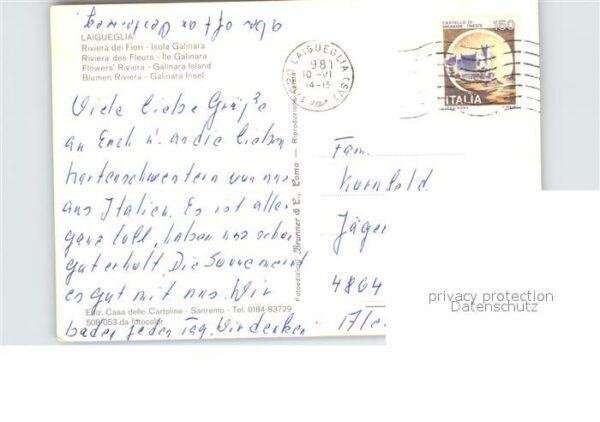 aber oft an
LAIGUEGLIA
Riviera dei Fiori - Isola Galinara
Riviera des Fleurs - Île Galinara
Flowers' Riviera - Galinara Island
Blumen Riviera - Galinara Insel
Viele liebe Grüße
an Euch u. an die lieben
Kartenschwestern von uns
aus Italien. Es ist alles
ganz toll, haben uns schon
gut erholt. Die Sonne meint
es gut mit uns. Wir
baden jeden Tag. Wir denken
Ediz. Casa delle Cartoline - Sanremo - Tel. 0184-83729
506/053 da fotocolor
Fotoedizioni Brunner & C., Como — Riproduzione
LAIGUEGLIA (SV)
981
10-VI
14-15
CASTELLO DI
MIRAMARE TRIESTE
150
ITALIA
Fam.
Kornfeld
Jäger
4864
privacy protection
Datenschutz